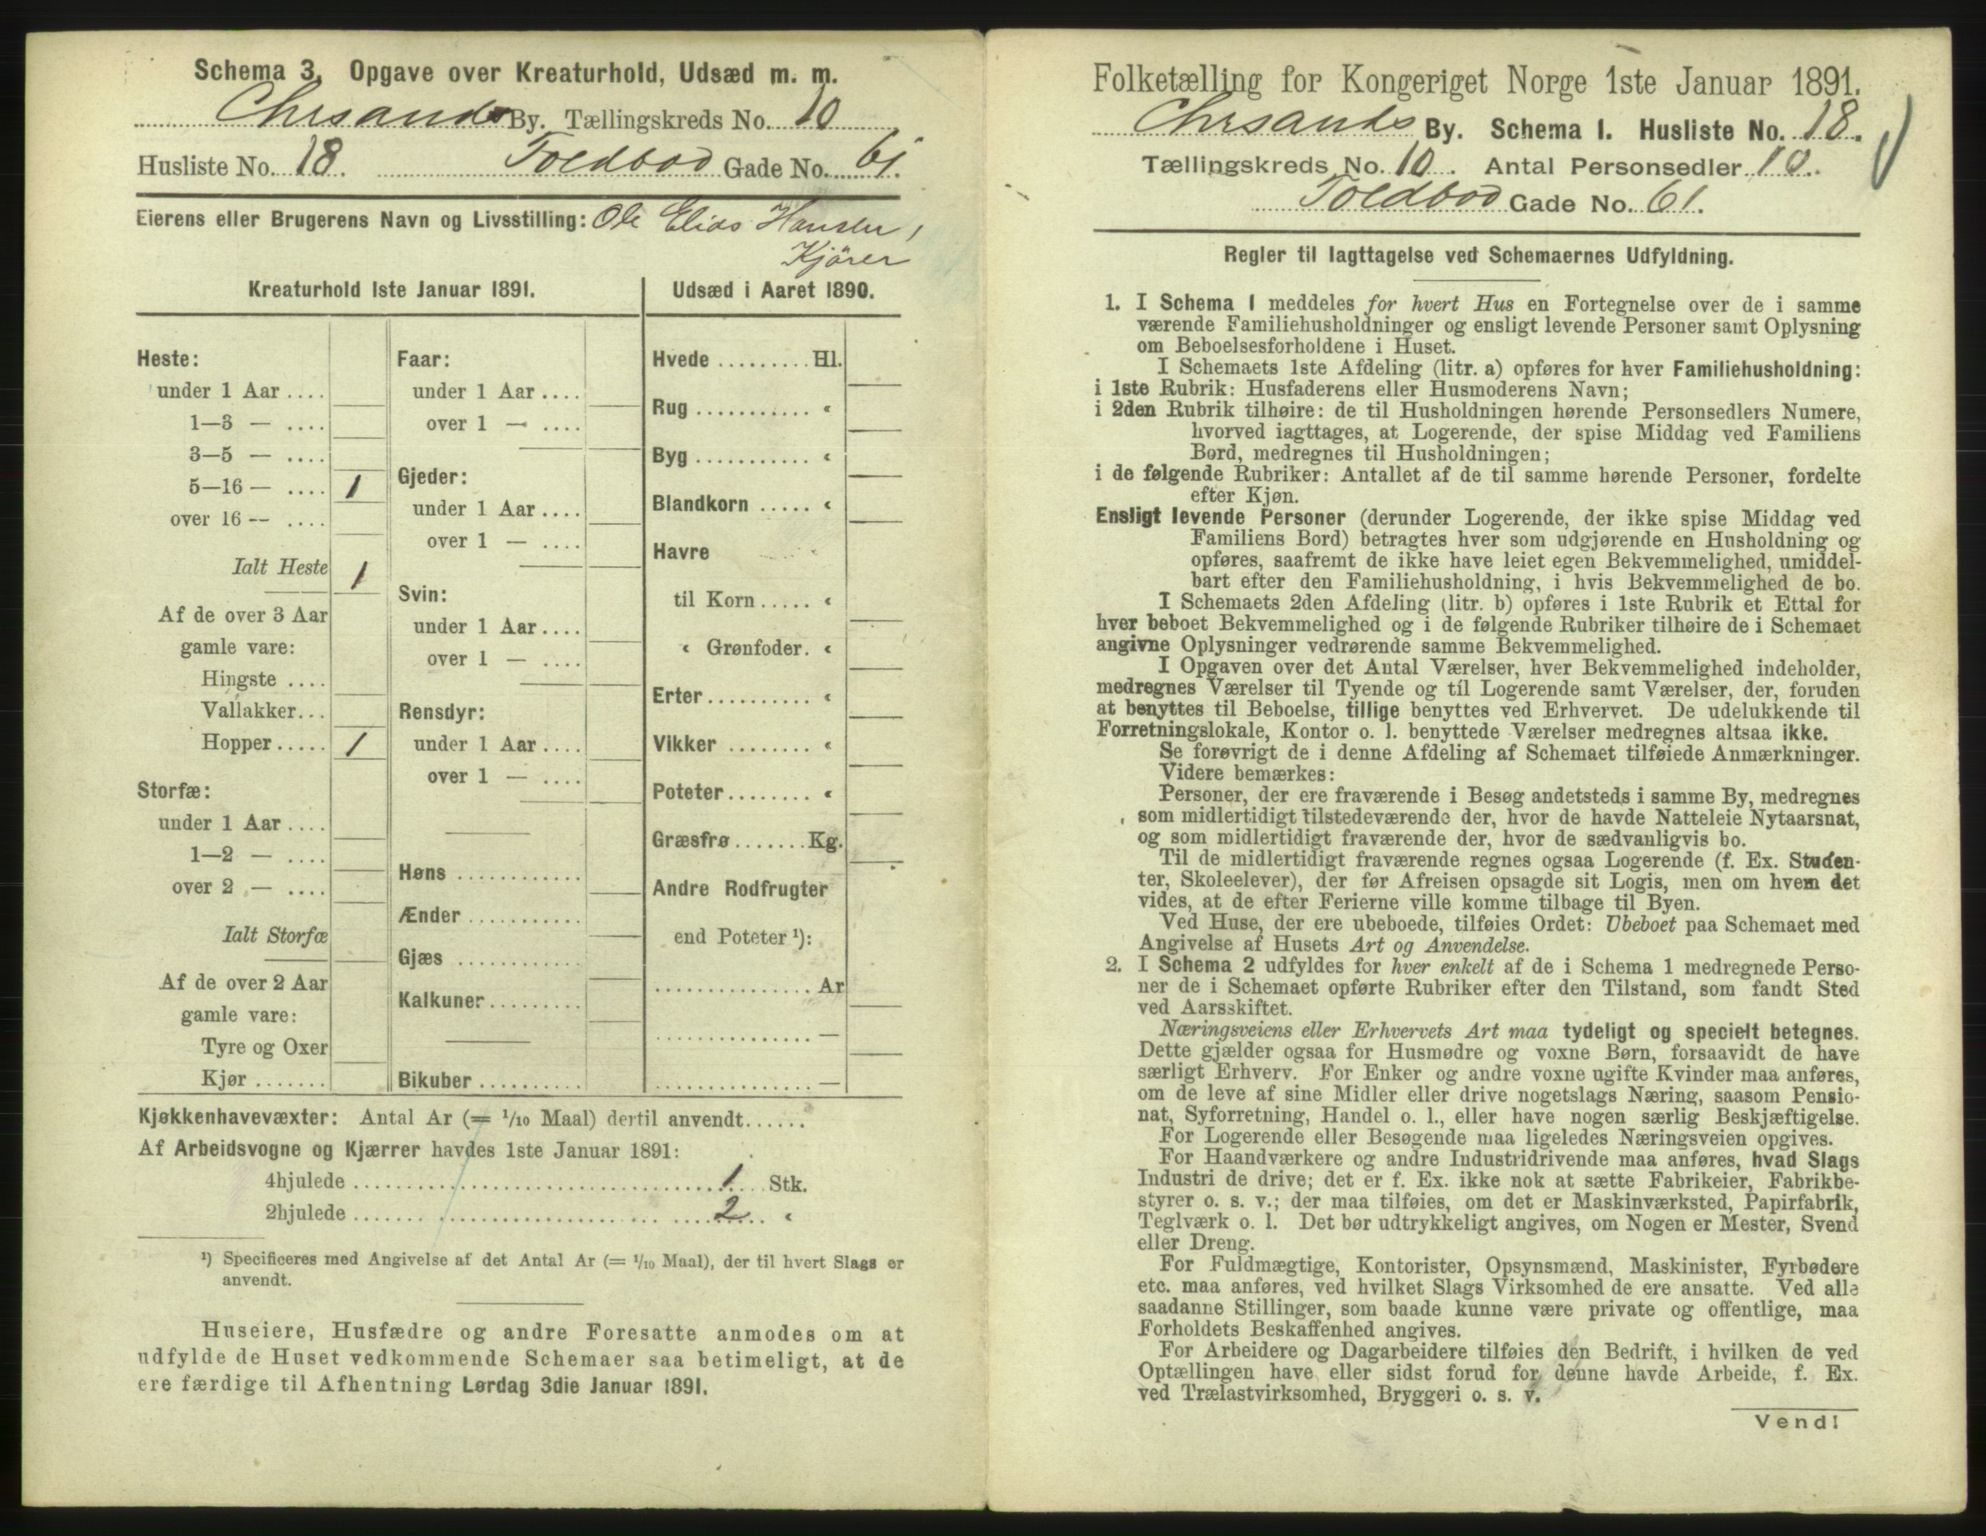 Schema 3. Opgave over Kreaturhold, Udsæd m. m.
Chrsands By. Tællingskreds No. 10
Husliste No. 18. Toldbod Gade No. 61.
Eierens eller Brugerens Navn og Livsstilling: Ole Elias Hansen,
Kjører
Kreaturhold 1ste Januar 1891.
Heste:
under 1 Aar ....
1—3 — ....
3—5 — ....
5—16 — .... 1
over 16 — ....
Ialt Heste 1
Af de over 3 Aar
gamle vare:
Hingste ....
Vallakker...
Hopper ..... 1
Storfæ:
under 1 Aar ....
1—2 — ....
over 2 — ....
Ialt Storfæ
Af de over 2 Aar
gamle vare:
Tyre og Oxer
Kjør .......
Faar:
under 1 Aar ....
over 1 — ....
Gjeder:
under 1 Aar ....
over 1 — ....
Svin:
under 1 Aar ....
over 1 — ....
Rensdyr:
under 1 Aar ....
over 1 — ....
Høns ...........
Ænder ..........
Gjæs ...........
Kalkuner ........
Bikuber .........
Udsæd i Aaret 1890.
Hvede ......... Hl.
Rug ........... «
Byg ........... «
Blandkorn ..... «
Havre
til Korn ..... «
« Grønfoder. «
Erter .......... «
Vikker ........ «
Poteter ........ «
Græsfrø ....... Kg.
Andre Rodfrugter
end Poteter ¹):
............... Ar
............... —
............... —
Kjøkkenhavevæxter: Antal Ar (= 1/10 Maal) dertil anvendt......
Af Arbeidsvogne og Kjærrer havdes 1ste Januar 1891:
4hjulede ........ 1 Stk.
2hjulede ........ 2 «
¹) Specificeres med Angivelse af det Antal Ar (= 1/10 Maal), der til hvert Slags er
anvendt.
Huseiere, Husfædre og andre Foresatte anmodes om at
udfylde de Huset vedkommende Schemaer saa betimeligt, at de
ere færdige til Afhentning Lørdag 3die Januar 1891.
Folketælling for Kongeriget Norge 1ste Januar 1891.
Chrsands By. Schema 1. Husliste No. 18.
Tællingskreds No. 10. Antal Personsedler 10.
Toldbod Gade No. 61.
Regler til Iagttagelse ved Schemaernes Udfyldning.
1. I Schema 1 meddeles for hvert Hus en Fortegnelse over de i samme
værende Familiehusholdninger og ensligt levende Personer samt Oplysning
om Beboelsesforholdene i Huset.
I Schemaets 1ste Afdeling (litr. a) opføres for hver Familiehusholdning:
i 1ste Rubrik: Husfaderens eller Husmoderens Navn;
i 2den Rubrik tilhøire: de til Husholdningen hørende Personsedlers Numere,
hvorved iagttages, at Logerende, der spise Middag ved Familiens
Bord, medregnes til Husholdningen;
i de følgende Rubriker: Antallet af de til samme hørende Personer, fordelte
efter Kjøn.
Ensligt levende Personer (derunder Logerende, der ikke spise Middag ved
Familiens Bord) betragtes hver som udgjørende en Husholdning og
opføres, saafremt de ikke have leiet egen Bekvemmelighed, umiddel-
bart efter den Familiehusholdning, i hvis Bekvemmelighed de bo.
I Schemaets 2den Afdeling (litr. b) opføres i 1ste Rubrik et Ettal for
hver beboet Bekvemmelighed og i de følgende Rubriker tilhøire de i Schemaet
angivne Oplysninger vedrørende samme Bekvemmelighed.
I Opgaven over det Antal Værelser, hver Bekvemmelighed indeholder,
medregnes Værelser til Tyende og til Logerende samt Værelser, der, foruden
at benyttes til Beboelse, tillige benyttes ved Erhvervet. De udelukkende til
Forretningslokale, Kontor o. l. benyttede Værelser medregnes altsaa ikke.
Se forøvrigt de i denne Afdeling af Schemaet tilføiede Anmærkninger.
Videre bemærkes:
Personer, der ere fraværende i Besøg andetsteds i samme By, medregnes
som midlertidigt tilstedeværende der, hvor de havde Natteleie Nytaarsnat,
og som midlertidigt fraværende der, hvor de sædvanligvis bo.
Til de midlertidigt fraværende regnes ogsaa Logerende (f. Ex. Studen-
ter, Skoleelever), der før Afreisen opsagde sit Logis, men om hvem det
vides, at de efter Ferierne ville komme tilbage til Byen.
Ved Huse, der ere ubeboede, tilføies Ordet: Ubeboet paa Schemaet med
Angivelse af Husets Art og Anvendelse.
2. I Schema 2 udfyldes for hver enkelt af de i Schema 1 medregnede Perso-
ner de i Schemaet opførte Rubriker efter den Tilstand, som fandt Sted
ved Aarsskiftet.
Næringsveiens eller Erhvervets Art maa tydeligt og specielt betegnes.
Dette gjælder ogsaa for Husmødre og voxne Børn, forsaavidt de have
særligt Erhverv. For Enker og andre voxne ugifte Kvinder maa anføres,
om de leve af sine Midler eller drive nogetslags Næring, saasom Pensio-
nat, Syforretning, Handel o. l., eller have nogen særlig Beskjæftigelse.
For Logerende eller Besøgende maa ligeledes Næringsveien opgives.
For Haandværkere og andre Industridrivende maa anføres, hvad Slags
Industri de drive; det er f. Ex. ikke nok at sætte Fabrikeier, Fabrikbe-
styrer o. s. v.; der maa tilføies, om det er Maskinværksted, Papirfabrik,
Teglværk o. l. Det bør udtrykkeligt angives, om Nogen er Mester, Svend
eller Dreng.
For Fuldmægtige, Kontorister, Opsynsmænd, Maskinister, Fyrbødere
etc. maa anføres, ved hvilket Slags Virksomhed de ere ansatte. Ved alle
saadanne Stillinger, som baade kunne være private og offentlige, maa
Forholdets Beskaffenhed angives.
For Arbeidere og Dagarbeidere tilføies den Bedrift, i hvilken de ved
Optællingen have eller sidst forud for denne havde Arbeide, f. Ex.
ved Trælastvirksomhed, Bryggeri o. s. v.
Vend!